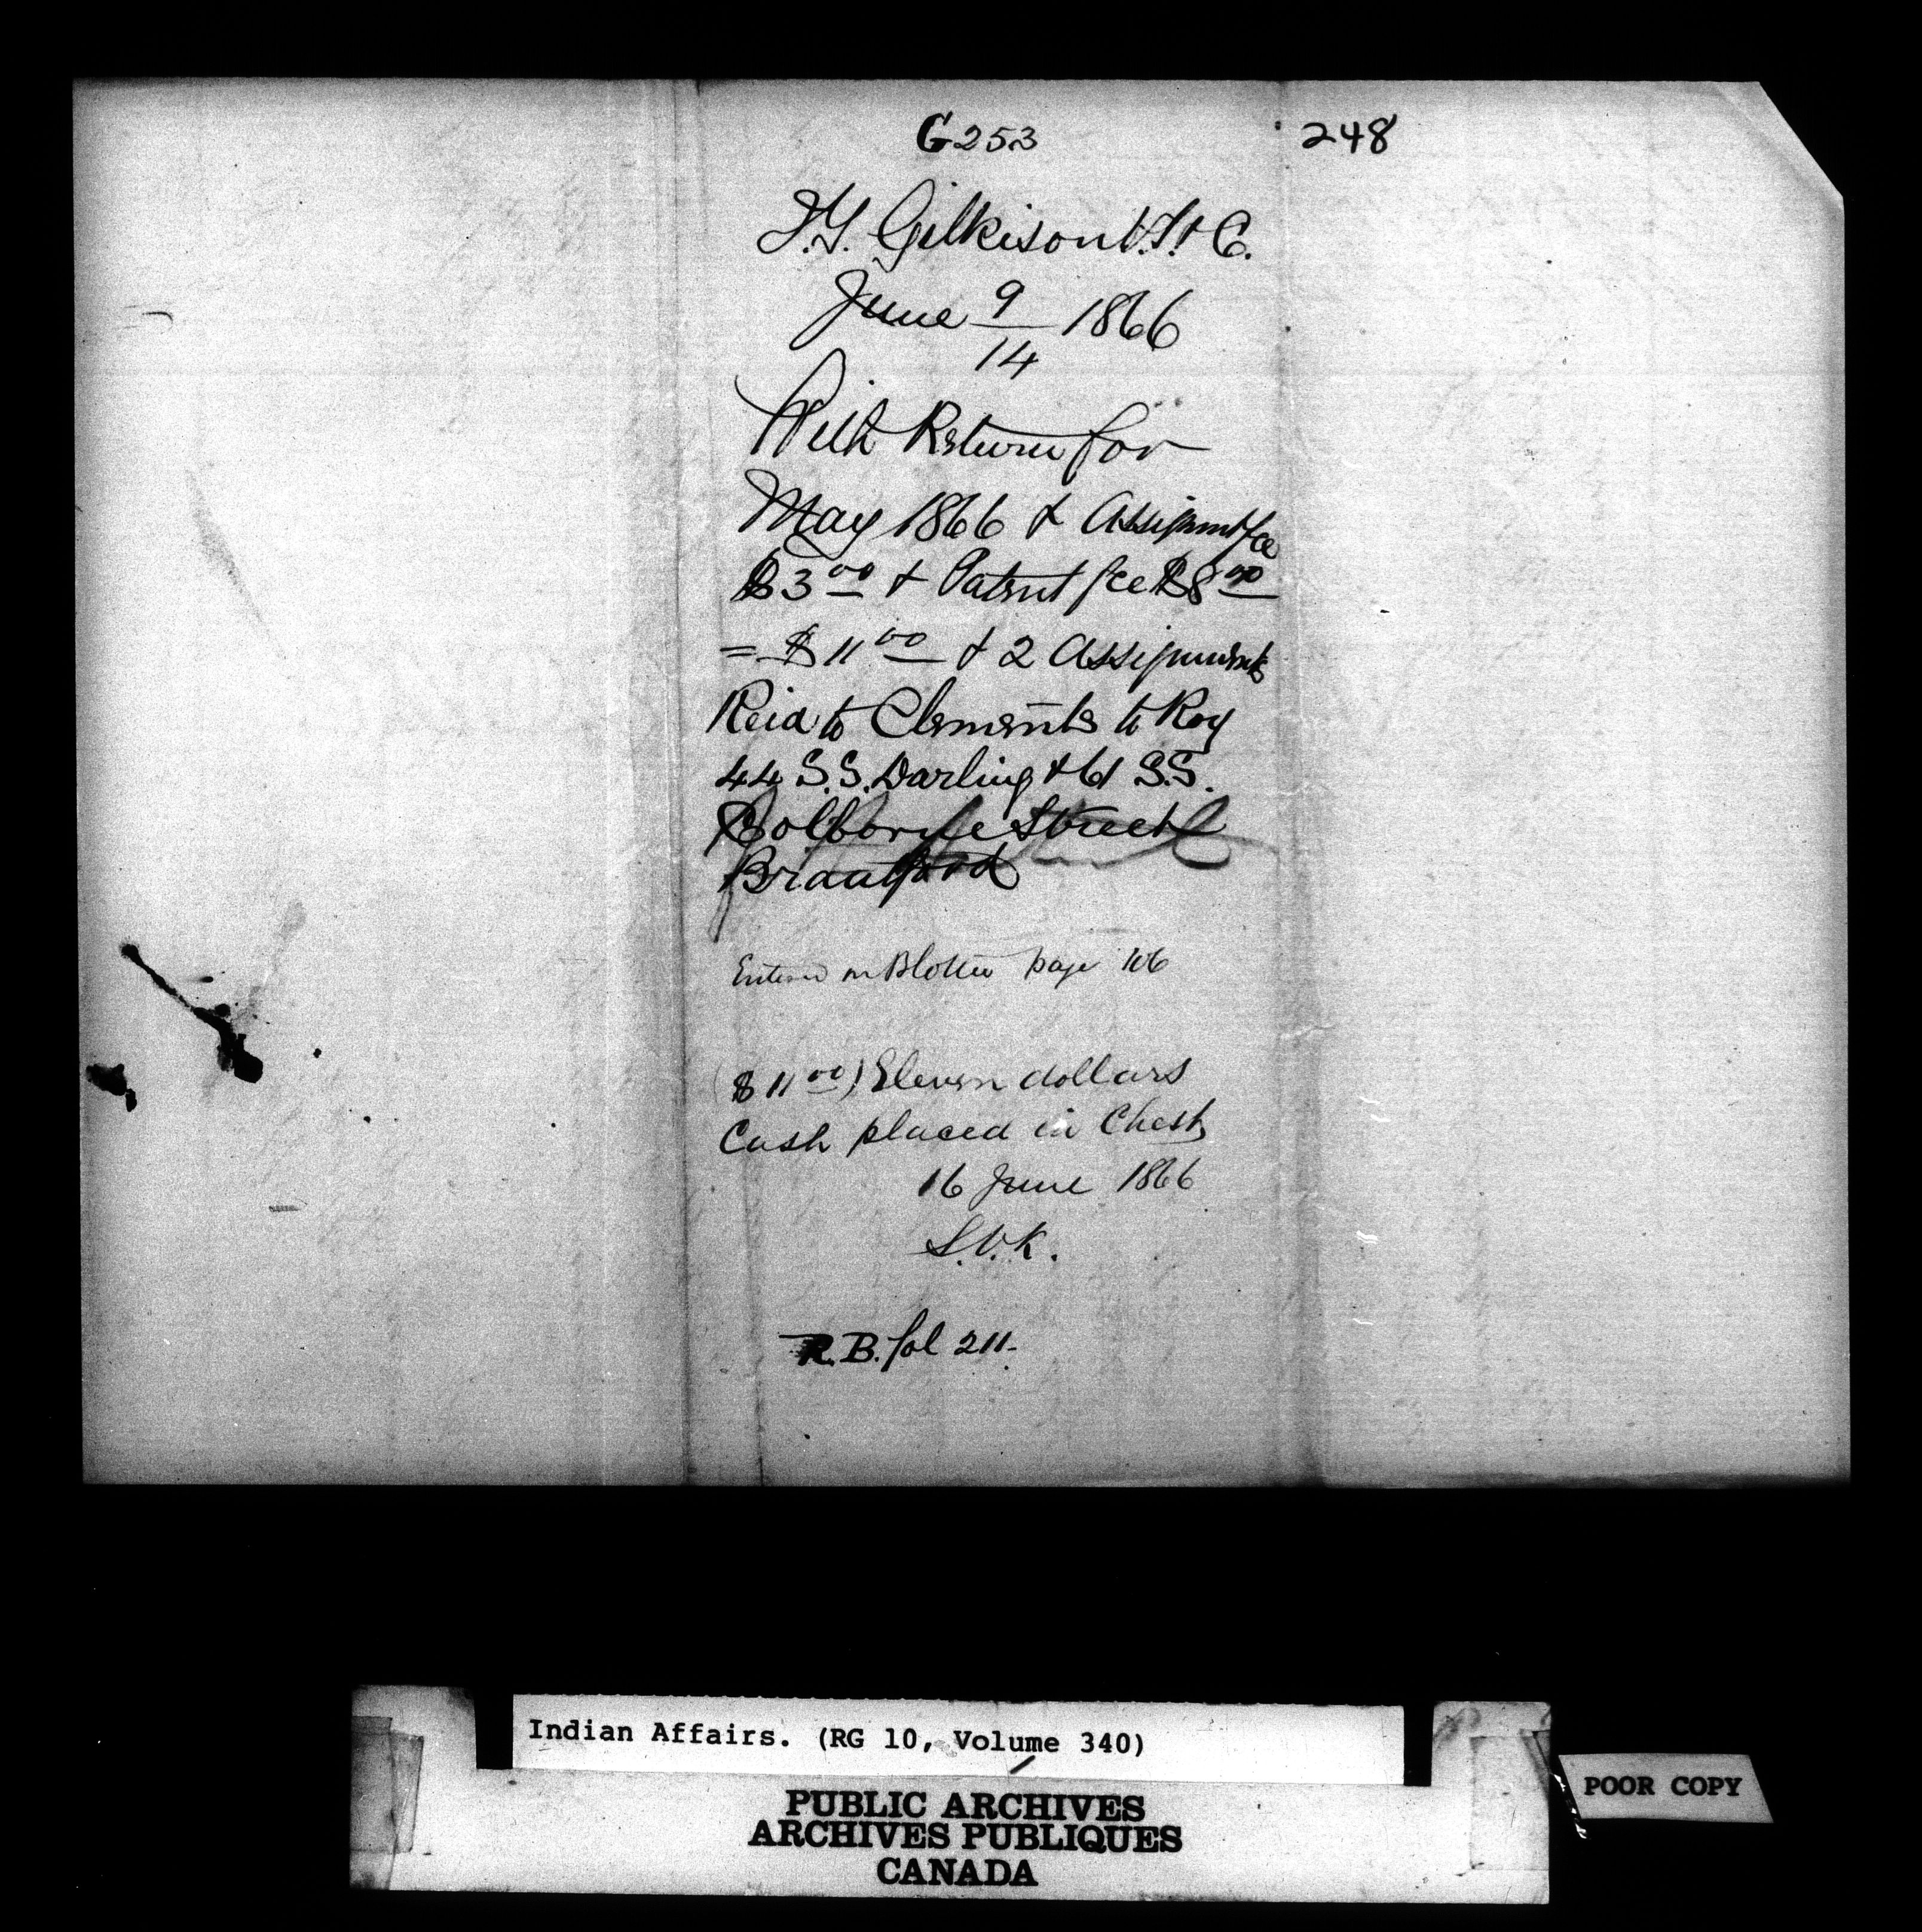 G253
248
J.T. Gilkison V.S. & C.
June 9/14 1866
With Return for
May 1866 & Assignmt fee
$3 00 & Patent fee $8 00
= $11 00 & 2 Assignments
Reid to Clements to Roy
44 S.S. Darling & 61 S.S.
Colborne Street
Brantford
Entered in Blotter page 106
($11 00) Eleven dollars
Cash placed in Chest
16 June 1866
S.V.K.
R.B. fol 211.
Indian Affairs. (RG 10, Volume 340)
PUBLIC ARCHIVES
ARCHIVES PUBLIQUES
CANADA
POOR COPY